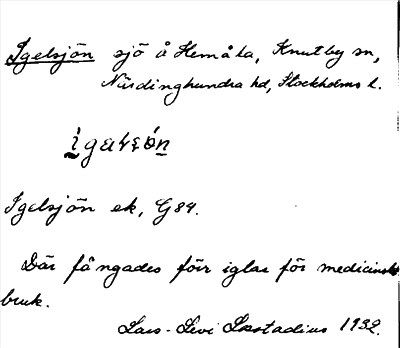 Igelsjön sjö å Hemåka, Knutby sn,
Närdinghundra hd, Stockholms l.
Igelsjön ek, G84.
Där fångades förr iglar för medicinskt
bruk.
Lars-Levi Læstadius 1932.